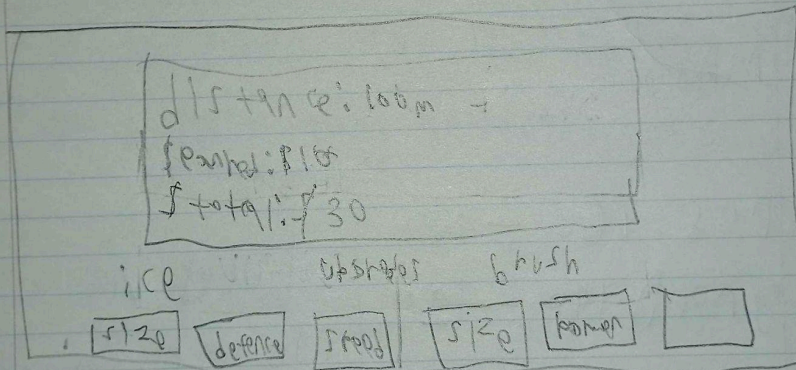 distance: 100m
$ earned: $10
$ total: $30
ice upgrades brush
size defence speed size